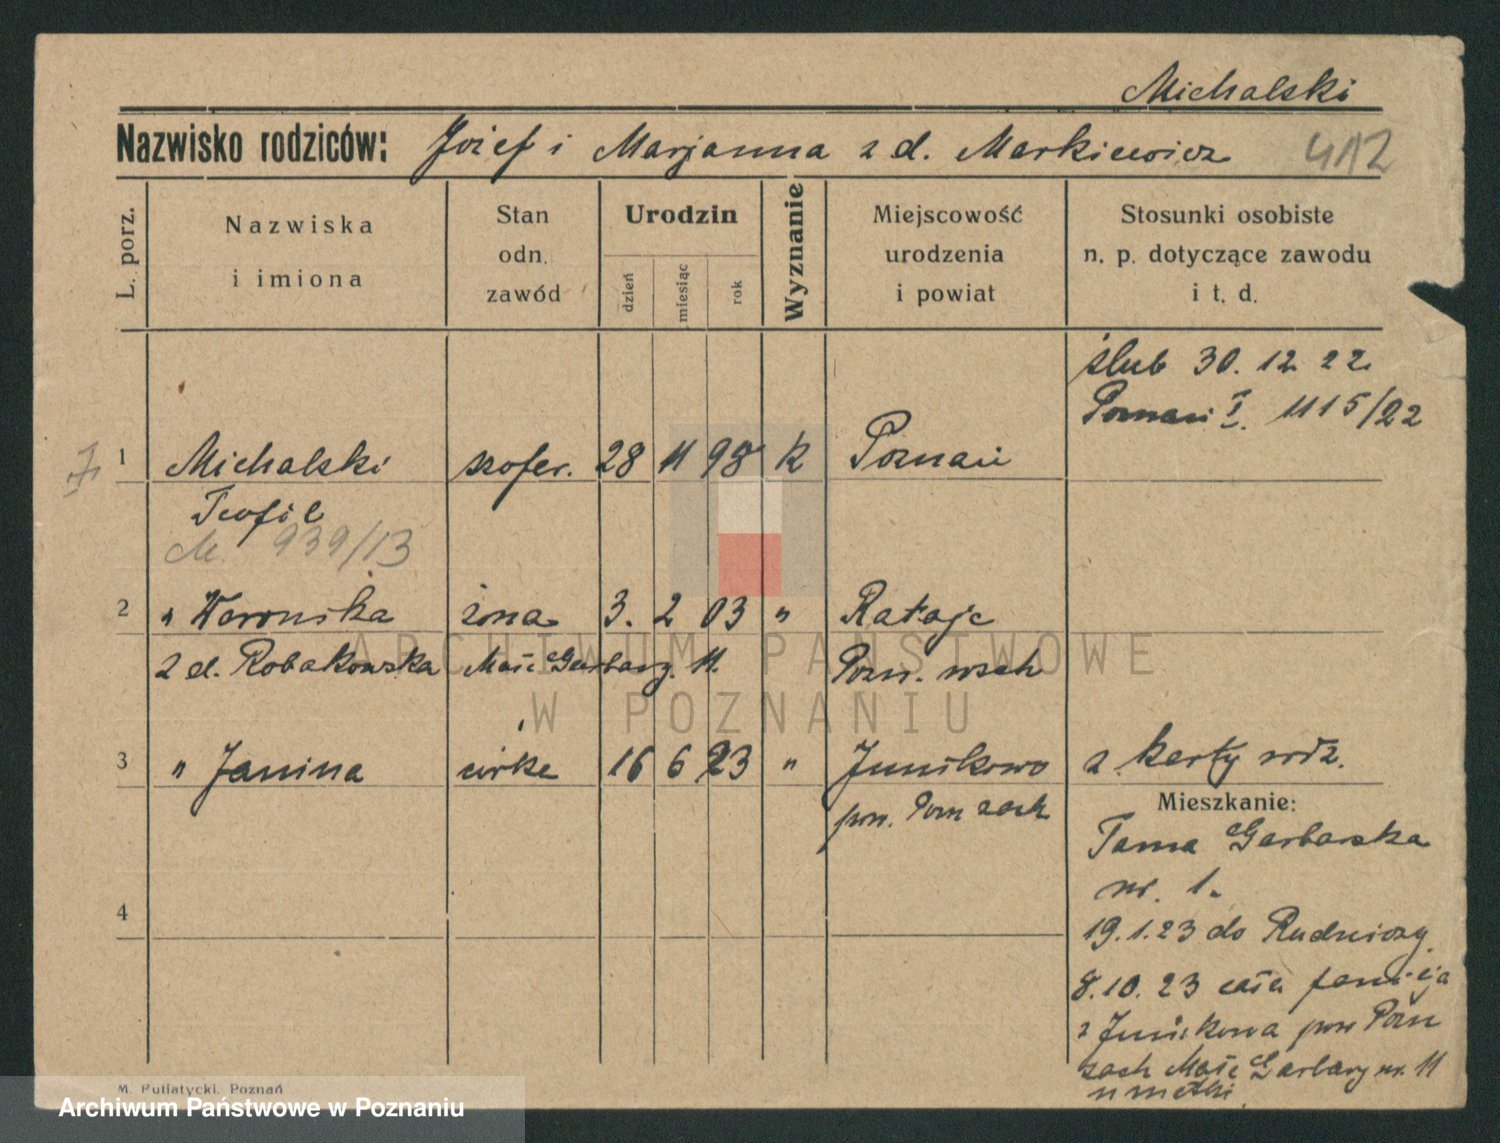 Michalski
Nazwisko rodziców: Józef i Marjanna z d. Markiewicz 412
L. porz.
Nazwiska i imiona
Stan odn. zawód
Urodzin
dzień
miesiąc
rok
Wyznanie
Miejscowość urodzenia i powiat
Stosunki osobiste n. p. dotyczące zawodu i t. d.
ślub 30. 12. 22.
Poznań I. 1115/22
1 Michalski szofer. 28 11 98 K Poznań
Teofil
M. 939/13
2 " Weronika żona 3. 2 03 " Rataje
z d. Robakowska Małe Garbary. 11. Pozn. wsch
3 " Janina córka 16 6 23 " Junikowo z karty rodz.
pow. Pozn zach
Mieszkanie:
Tama Garbarska
nr. 1.
4
19.1.23 do Rudniczy
8.10.23 cała familja
z Junikowa pow Pozn
zach Małe Garbary nr. 11
u matki.
M. Putiatycki, Poznań
ARCHIWUM PAŃSTWOWE
W POZNANIU
Archiwum Państwowe w Poznaniu